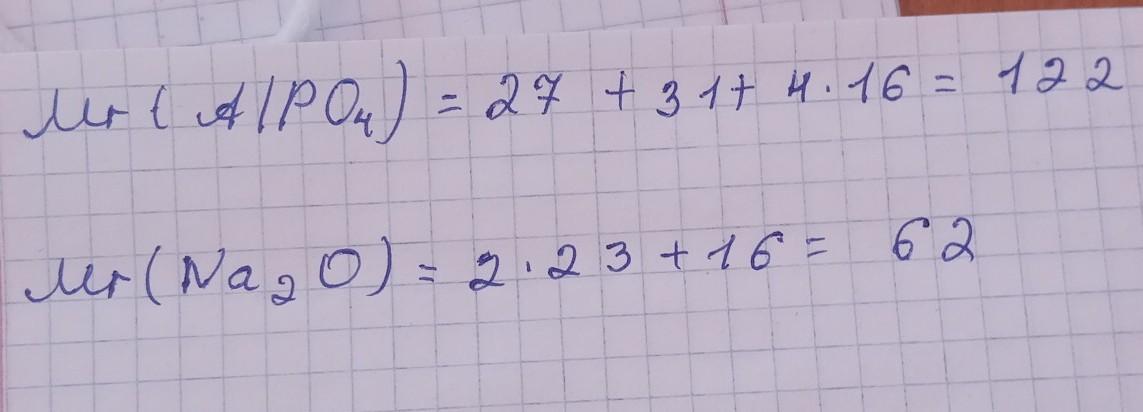 Mr(AlPO₄) = 27 + 31 + 4 · 16 = 122
Mr(Na₂O) = 2 · 23 + 16 = 62